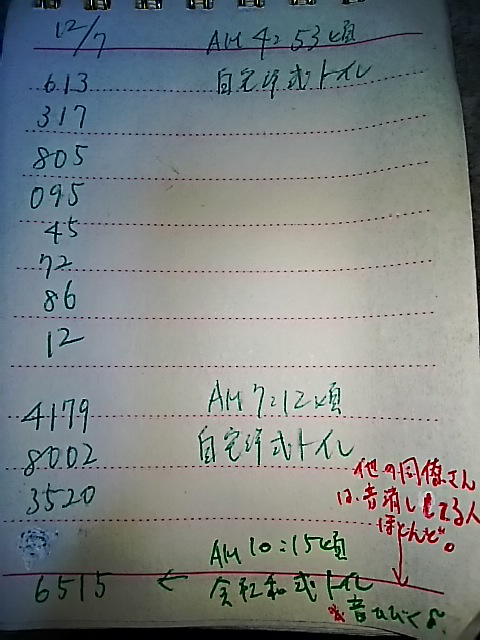 12/7 AM 4:53頃
613 自宅洋式トイレ
317
805
095
45
72
86
12
4179 AM 7:12頃
8002 自宅洋式トイレ
3520
他の同僚さん
は、音消ししてる人
ほとんど。
AM 10:15頃
6515 ← 会社和式トイレ
※音ひびく